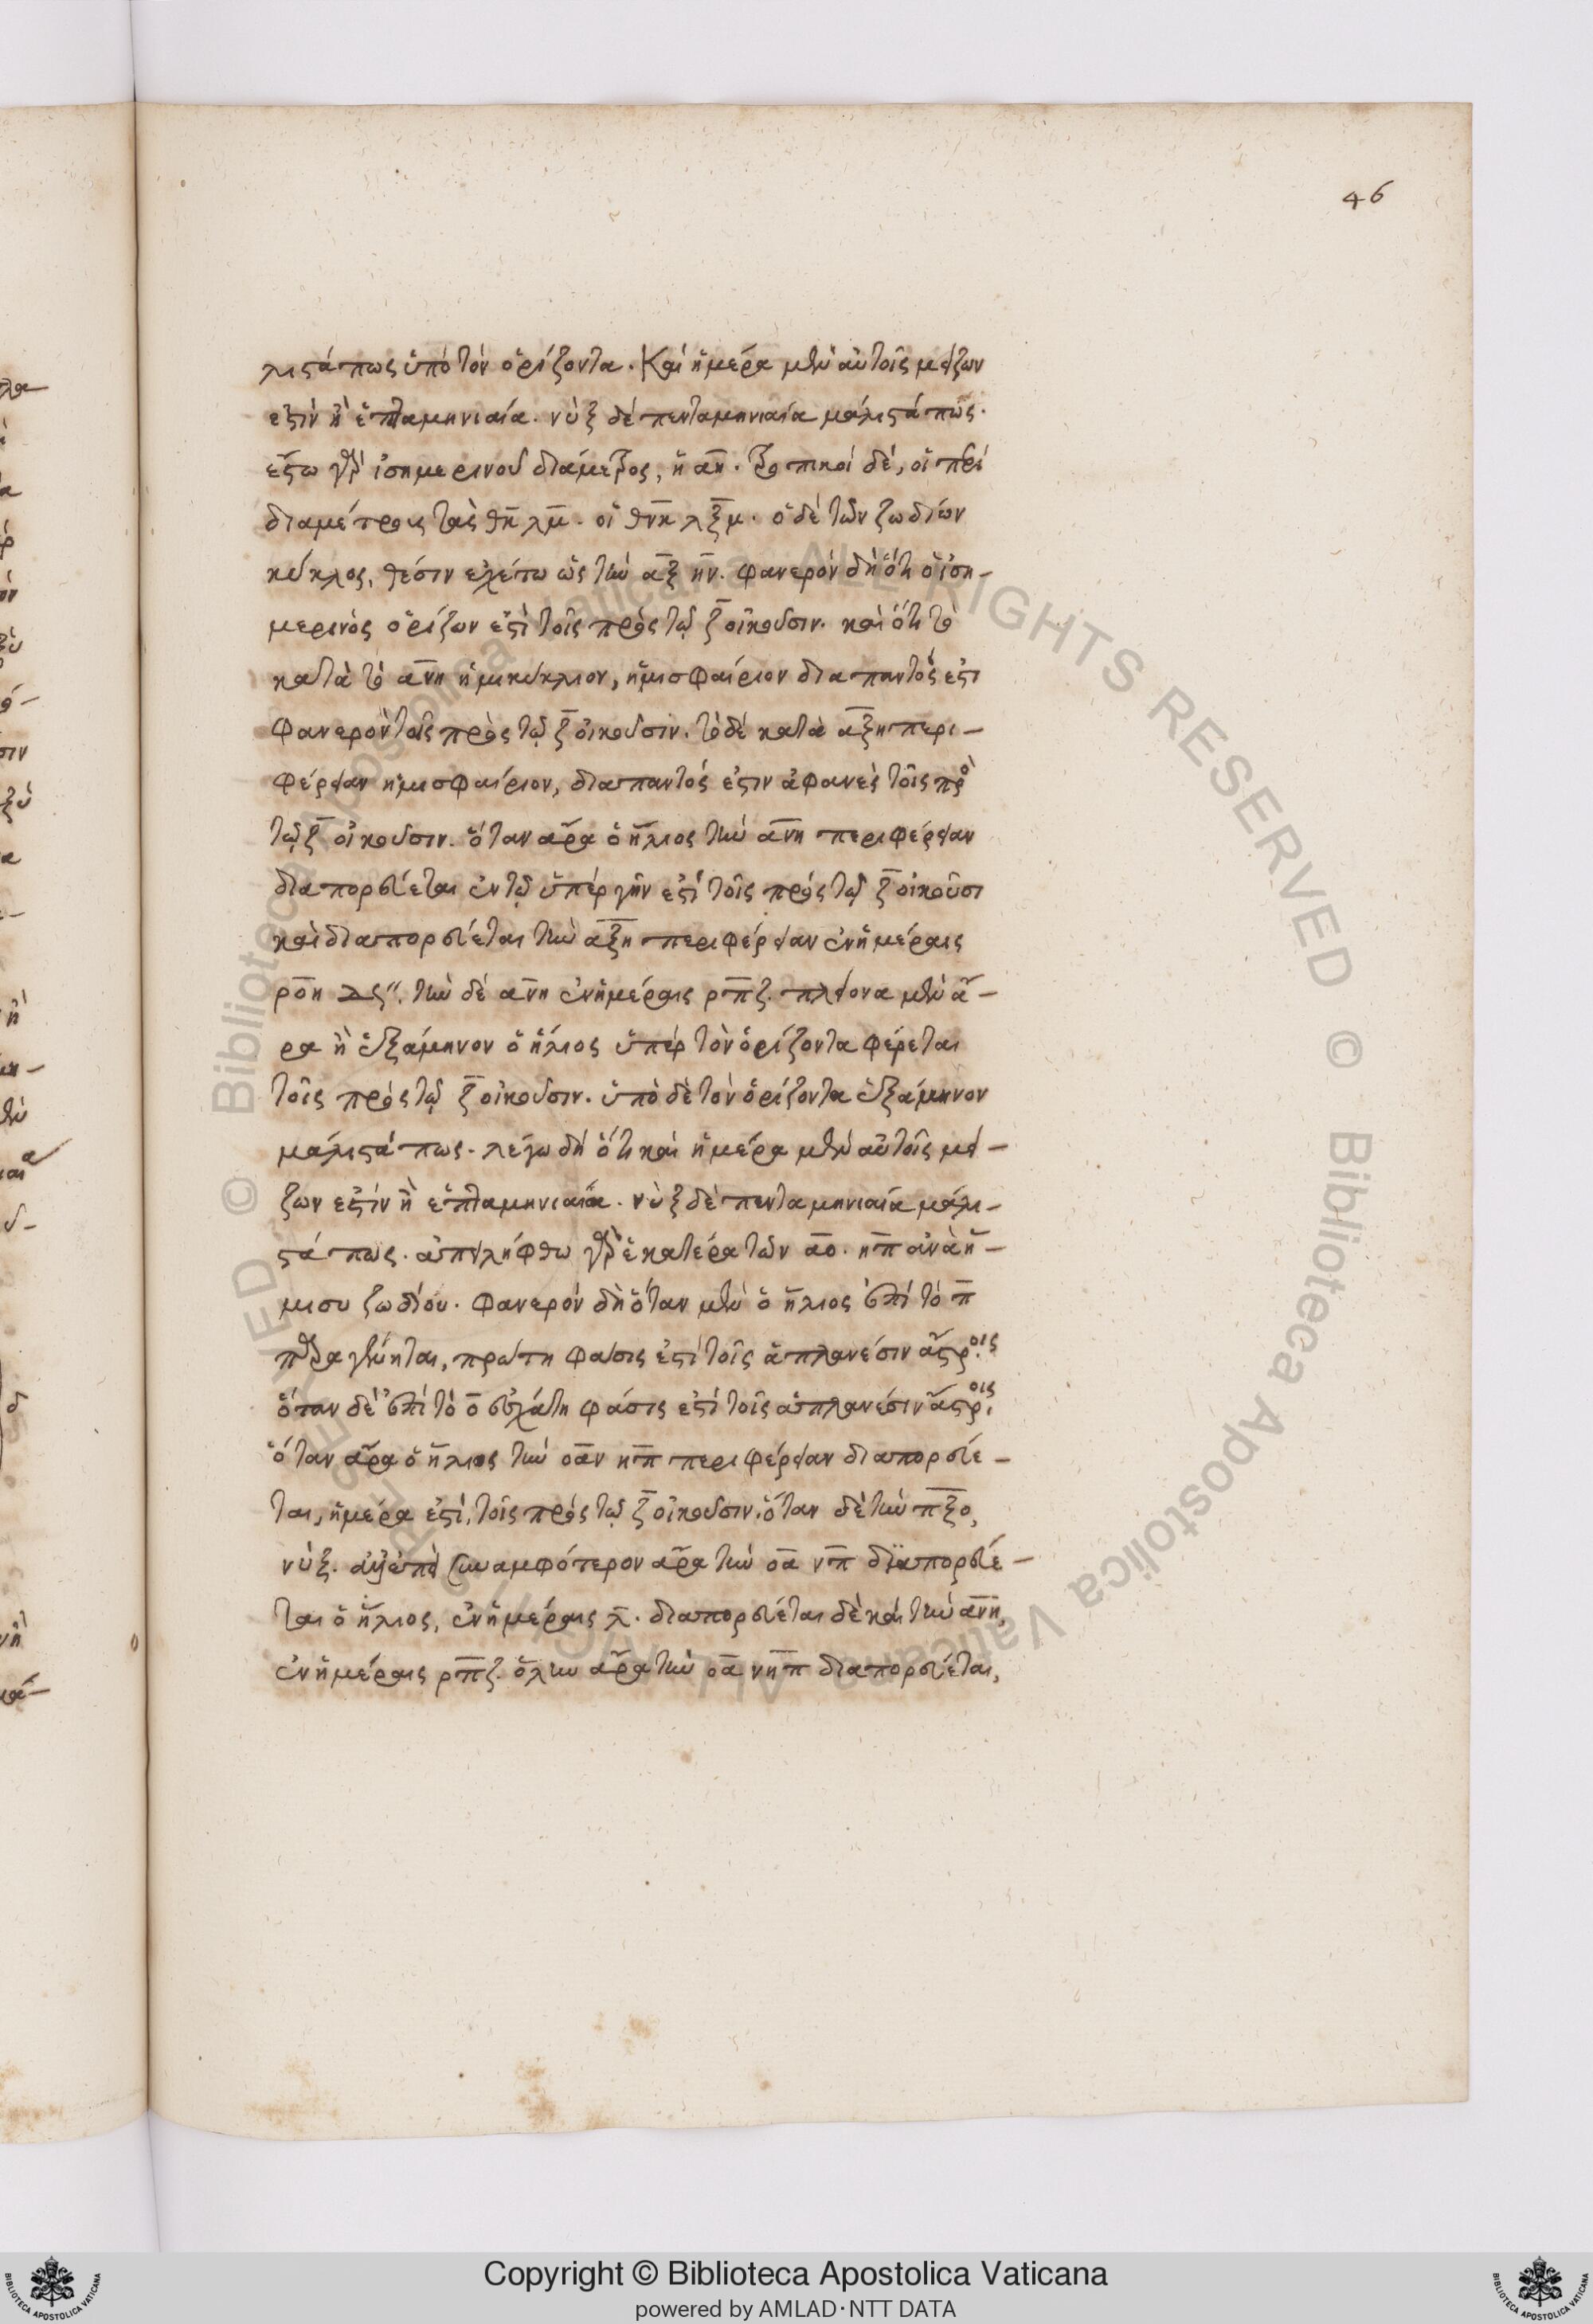 46
λιστά πως ὑπὸ τὸν ὁρίζοντα. Καὶ ἡμέρα μὲν αὐτοῖς μείζων
ἐστὶν ἢ ἑπταμηνιαία. νὺξ δὲ πενταμηνιαία μάλιστά πως.
ἔστω γὰρ ἰσημερινοῦ διάμετρος, ἡ αη. τροπικοὶ δὲ, οἱ περὶ
διαμέτρους τὰς θκ λμ. οἱ θνκ λξμ. ὁ δὲ τῶν ζωδίων
κύκλος, θέσιν ἐχέτω ὡς τὴν αξ ην. φανερὸν δὴ ὅτι ὁ ἰση-
μερινὸς ὁρίζων ἐστὶ τοῖς πρὸς τῷ ζ οἰκοῦσιν. καὶ ὅτι τὸ
κατὰ τὸ ανη ἡμικύκλιον, ἡμισφαίριον διαπαντός ἐστι
φανερὸν τοῖς πρὸς τῷ ζ οἰκοῦσιν. τὸ δὲ κατὰ αξη περι-
φέρειαν ἡμισφαίριον, διαπαντός ἐστιν ἀφανὲς τοῖς πρὸ
τῷ ζ οἰκοῦσιν. ὅταν ἄρα ὁ ἥλιος τὴν ανη περιφέρειαν
διαπορεύεται ἐν τῷ ὑπὲρ γῆν ἐστὶ τοῖς πρὸς τῷ ζ οἰκοῦσι
καὶ διαπορεύεται τὴν αξη περιφέρειαν ἐν ἡμέραις
ροη . τὴν δὲ ανη ἐν ἡμέραις ρπζ. πλείονα μὲν ἄ-
ρα ἢ ἑξάμηνον ὁ ἥλιος ὑπὲρ τὸν ὁρίζοντα φέρεται
τοῖς πρὸς τῷ ζ οἰκοῦσιν. ὑπὸ δὲ τὸν ὁρίζοντα ἑξάμηνον
μάλιστά πως. λέγω δὴ ὅτι καὶ ἡμέρα μὲν αὐτοῖς μεί-
ζων ἐστὶν ἢ ἑπταμηνιαία. νὺξ δὲ πενταμηνιαία μάλι-
στά πως. ἀπειλήφθω γὰρ ἑκατέρα τῶν αο. ηπ ἀνὰ ἥ-
μισυ ζωδίου. φανερὸν δὴ ὅταν μὲν ὁ ἥλιος ἐπὶ τὸ π
παραγένηται, πρώτη φάσις ἐστὶ τοῖς ἀπλανέσιν ἄστροις.
ὅταν δὲ ἐπὶ τὸ ο ἐσχάτη φάσις ἐστὶ τοῖς ἀπλανέσιν ἄστροις.
ὅταν ἄρα ὁ ἥλιος τὴν οαν ηπ περιφέρειαν διαπορεύε-
ται, ἡμέρα ἐστὶ, τοῖς πρὸς τῷ ζ οἰκοῦσιν. ὅταν δὲ τὴν πξο,
νὺξ. συναμφότερον ἄρα τὴν οα νπ διαπορεύε-
ται ὁ ἥλιος, ἐν ἡμέραις λ. διαπορεύεται δὲ καὶ τὴν ανη,
ἐν ἡμέραις ρπζ. ὅλην ἄρα τὴν οα νηπ διαπορεύεται,
Copyright © Biblioteca Apostolica Vaticana
powered by AMLAD·NTT DATA